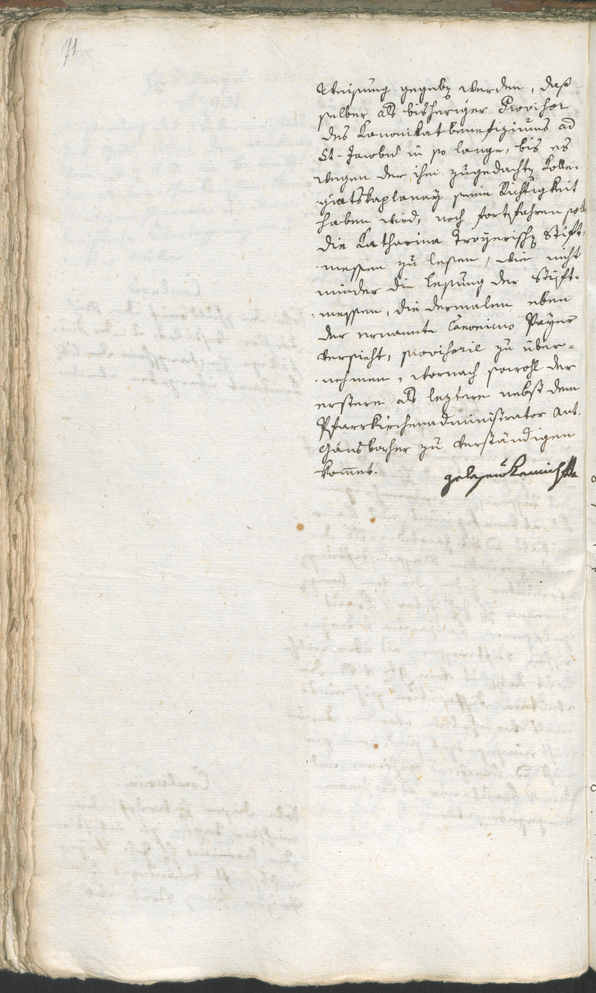 71
Weisung gegeben werden, daß
selber als bisheriger Provisor
des Kanonikatbenefiziums ad
St. Jacobum in so lange, bis es
wegen der ihm zugedachten Kolle-
giatskaplaney seine Richtigkeit
haben wird, noch fortfahren soll
die Katharina Troyerischen Stift-
messen zu lesen, wie nicht
minder die Lesung der Stift-
messen, die dermalen eben
der ernannte Canonicus Payer
versieht, provisorie zu über-
nehmen, wornach sowohl der
erstere als leztere nebst dem
Pfarrkirchenadministrator Ant.
Gänsbacher zu verständigen
kommet.
gelesen